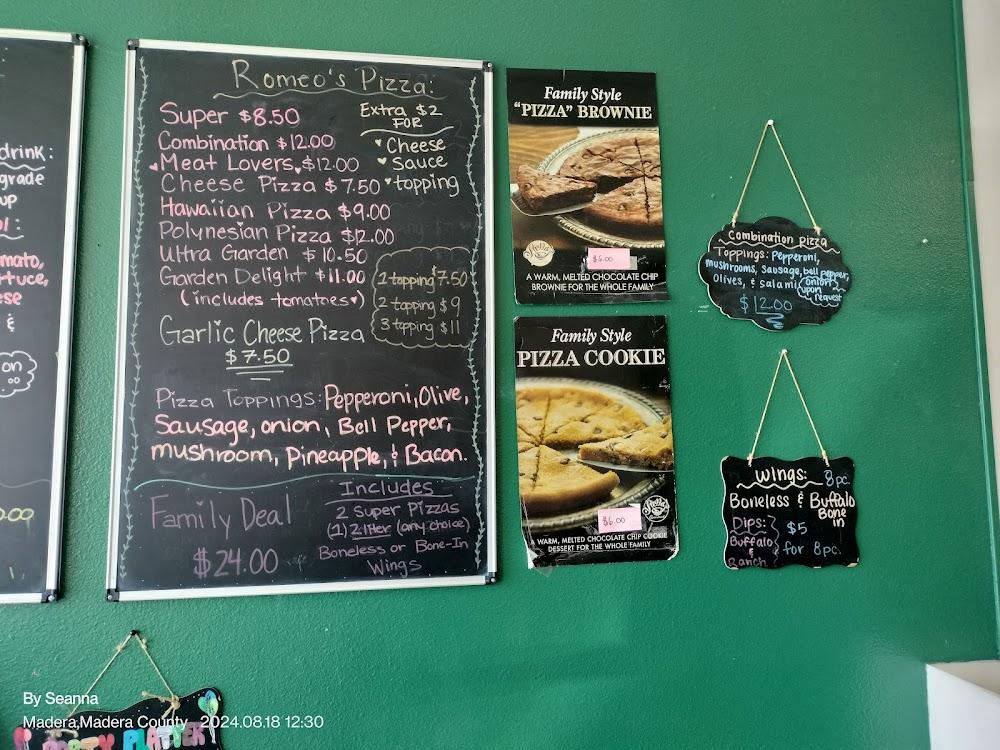 drink:
grade
up
mato,
ttuce,
ese
&
on
Romeo's Pizza:
Super $8.50
Combination $12.00
Meat Lovers $12.00
Cheese Pizza $7.50
Hawaiian Pizza $9.00
Polynesian Pizza $12.00
Ultra Garden $10.50
Garden Delight $11.00
(includes tomatoes)
Garlic Cheese Pizza
$7.50
Extra $2
FOR
Cheese
Sauce
topping
1 topping $7.50
2 topping $9
3 topping $11
Pizza Toppings: Pepperoni, Olive,
Sausage, onion, Bell Pepper,
mushroom, Pineapple, & Bacon.
Family Deal
$24.00
Includes
2 Super Pizzas
(1) 2 liter (any choice)
Boneless or Bone-In
Wings
Family Style
"PIZZA" BROWNIE
$6.00
A WARM, MELTED CHOCOLATE CHIP
BROWNIE FOR THE WHOLE FAMILY
Family Style
PIZZA COOKIE
$6.00
A WARM, MELTED CHOCOLATE CHIP COOKIE
DESSERT FOR THE WHOLE FAMILY
Combination Pizza
Toppings: Pepperoni,
mushrooms, Sausage, bell pepper,
olives, & salami
onion
upon
request
$12.00
Wings: 8pc.
Boneless & Buffalo
Bone
in
Dips:
Buffalo
&
Ranch
$5
for 8pc.
PARTY PLATTER
By Seanna
Madera,Madera County 2024.08.18 12:30